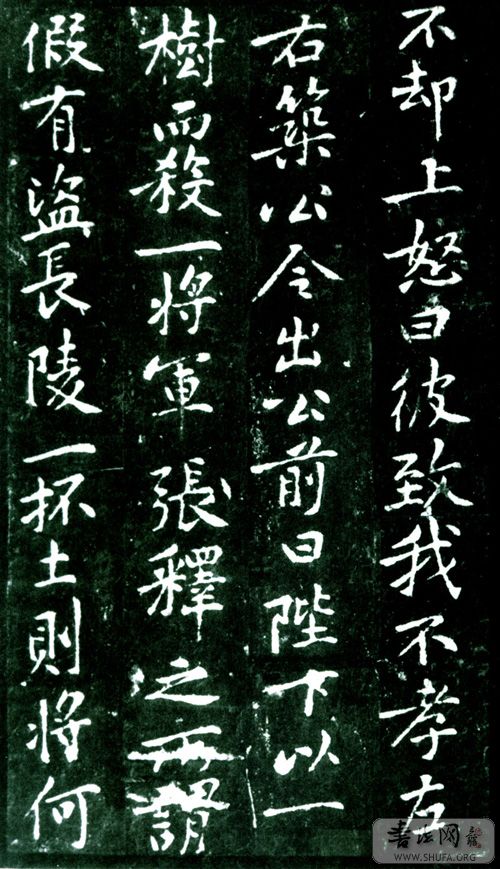 不却上怒曰彼致我不孝左
右築公令出公前曰陛下以一
樹而殺一將軍張釋之謂
假有盜長陵一抔土則將何
書法网
WWW.SHUFA.ORG